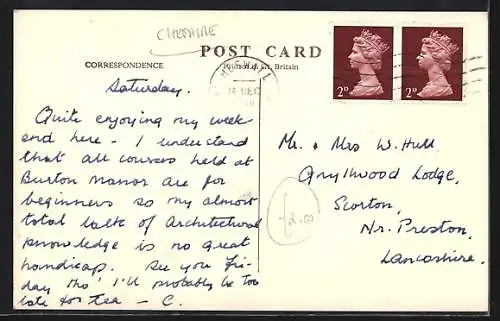 CHESHIRE
POST CARD
CORRESPONDENCE
Printed in Gt. Britain
HESWALL
14 DEC
2D 2D
Saturday.
Quite enjoying my week-
end here - I understand
that all courses held at
Burton Manor are for
beginners so my almost
total lack of Architectural
knowledge is no great
handicap. See you Fri-
day tho' I'll probably be too
late for tea - C.
Mr. & Mrs W. Hull
Lodge,
Scorton,
Nr. Preston,
Lancashire.
2.00